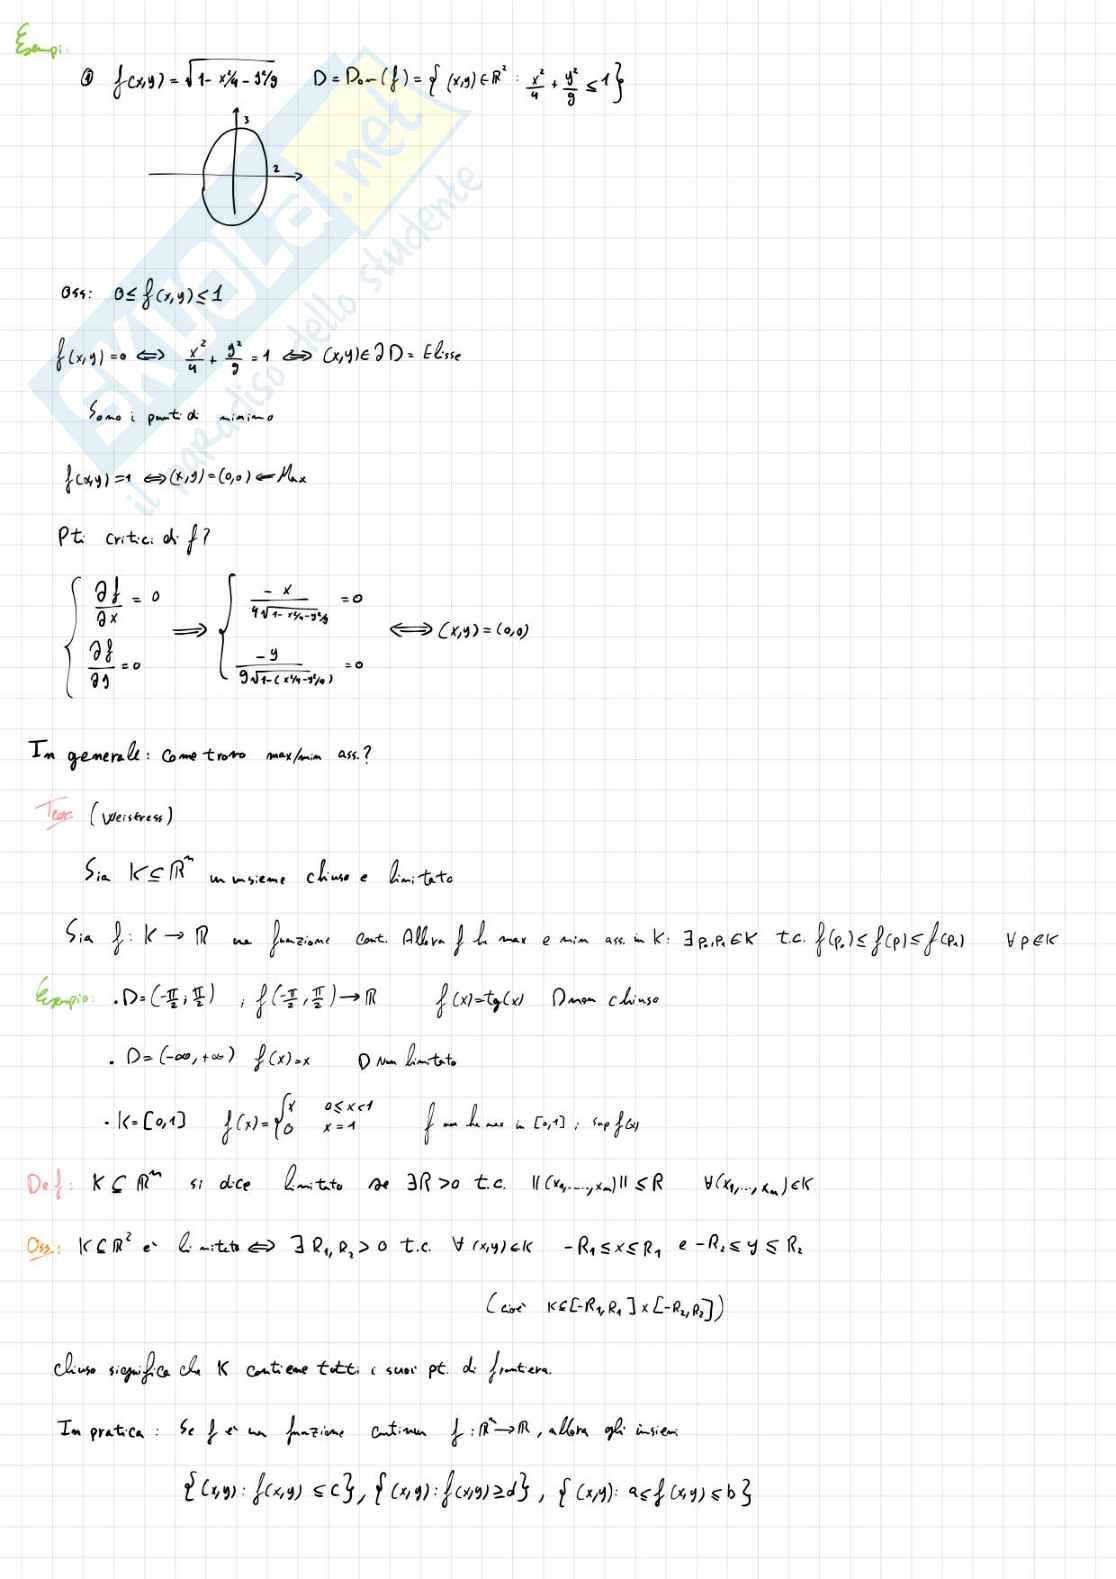 Esempi:
① f(x,y) = √1 - x²/4 - y²/9 D = Dom(f) = { (x,y) ∈ ℝ² : x²/4 + y²/9 ≤ 1 }
3
2
Oss: 0 ≤ f(x,y) ≤ 1
f(x,y) = 0 ⟺ x²/4 + y²/9 = 1 ⟺ (x,y) ∈ ∂D = Elisse
Sono i punti di minimo
f(x,y) = 1 ⟺ (x,y) = (0,0) ← Max
Pti critici di f?
{ ∂f/∂x = 0 ⟹ { -x / 4√1 - x²/4 - y²/9 = 0
∂f/∂y = 0 -y / 9√1 - (x²/4 - y²/9) = 0 ⟺ (x,y) = (0,0)
In generale: come trovo max/min ass.?
Teor. (Weistress)
Sia K ⊆ ℝⁿ un insieme chiuso e limitato
Sia f: K → ℝ una funzione cont. Allora f ha max e min ass. in K: ∃ p₀, p₁ ∈ K t.c. f(p₀) ≤ f(p) ≤ f(p₁) ∀ p ∈ K
Esempio: . D = (-π/2 ; π/2) , f (-π/2 , π/2) → ℝ f(x) = tg(x) D non chiuso
. D = (-∞, +∞) f(x) = x D non limitato
. K = [0,1] f(x) = { x 0 ≤ x < 1
0 x = 1 f non ha max in [0,1] ; sup f(x)
Def: K ⊆ ℝⁿ si dice limitato se ∃ R > 0 t.c. ||(x₁,...,xₙ)|| ≤ R ∀ (x₁,...,xₙ) ∈ K
Oss: K ⊆ ℝ² e' limitato ⟺ ∃ R₁, R₂ > 0 t.c. ∀ (x,y) ∈ K -R₁ ≤ x ≤ R₁ e -R₂ ≤ y ≤ R₂
(cioè K ⊆ [-R₁, R₁] x [-R₂, R₂])
chiuso significa che K contiene tutti i suoi pt. di frontiera.
In pratica: se f e' una funzione continua f: ℝⁿ → ℝ, allora gli insiemi
{ (x,y) : f(x,y) ≤ c }, { (x,y) : f(x,y) ≥ d }, { (x,y) : a ≤ f(x,y) ≤ b }
SKUOLA.net
il paradiso dello studente